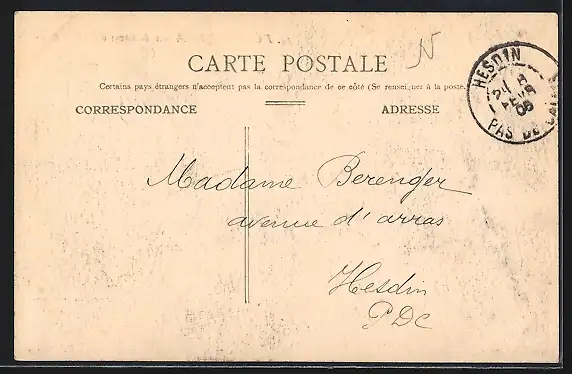 CARTE POSTALE
Certains pays étrangers n'acceptent pas la correspondance de ce côté (Se renseigner à la poste.
CORRESPONDANCE
ADRESSE
N
HESDIN
21
FEVR
06
PAS DE CALAIS
Madame Berenger
avenue d'arras
Hesdin
PDC